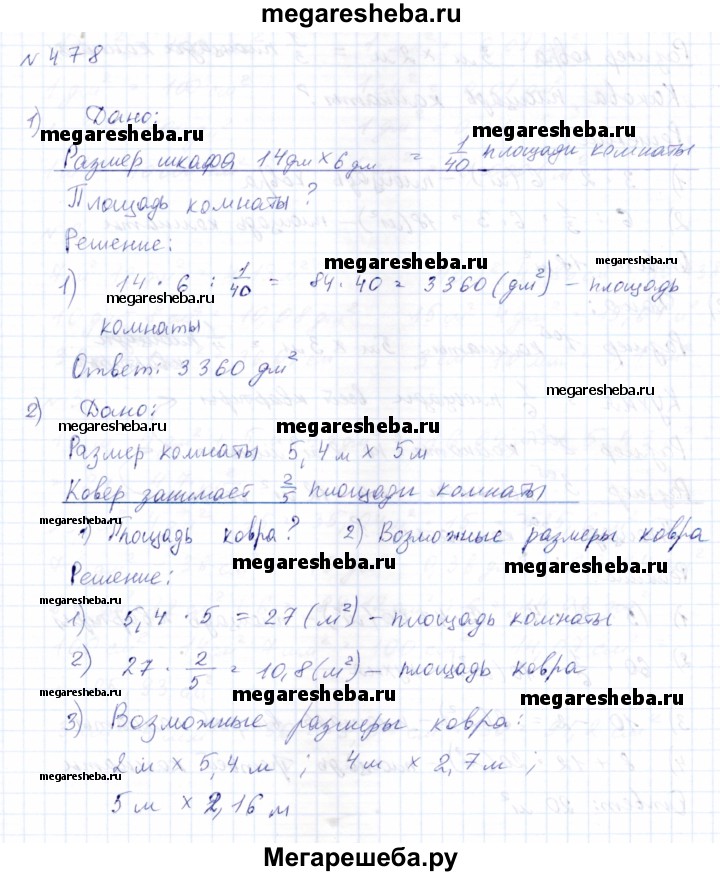 megaresheba.ru
№ 478
1) Дано:
megaresheba.ru megaresheba.ru
Размер шкафа 14дм х 6 дм = 1/40 площади комнаты
Площадь комнаты?
Решение:
megaresheba.ru megaresheba.ru
1) 14 · 6 : 1/40 = 84 · 40 = 3360 (дм²) – площадь
megaresheba.ru
комнаты
Ответ: 3360 дм²
megaresheba.ru
2) Дано:
megaresheba.ru
Размер комнаты 5,4 м х 5 м
Ковер занимает 2/5 площади комнаты
megaresheba.ru megaresheba.ru
1) Площадь ковра? 2) Возможные размеры ковра
megaresheba.ru megaresheba.ru
Решение:
megaresheba.ru
1) 5,4 · 5 = 27 (м²) – площадь комнаты
2) 27 · 2/5 = 10,8 (м²) – площадь ковра
megaresheba.ru megaresheba.ru
3) Возможные размеры ковра:
2 м х 5,4 м ; 4 м х 2,7 м ;
megaresheba.ru megaresheba.ru
5 м х 2,16 м
Мегарешеба.ру